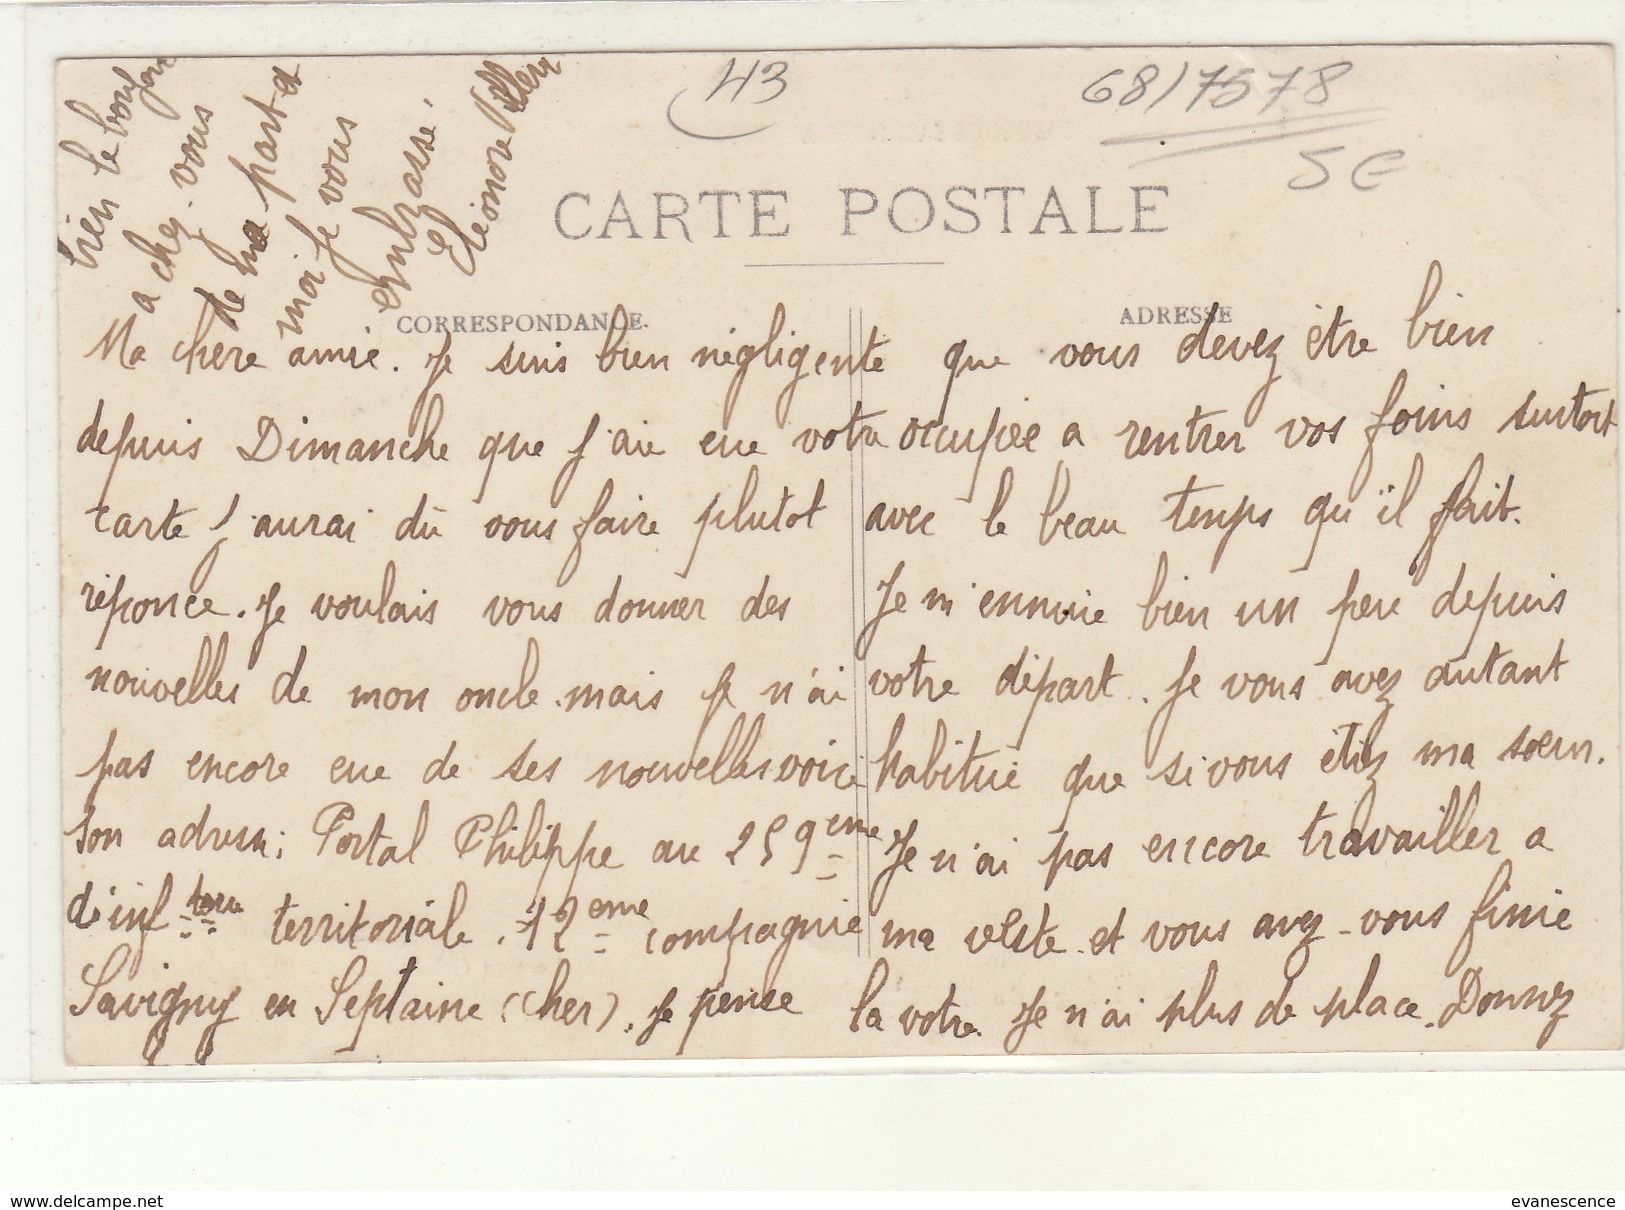 43
68/7578
5 €
CARTE POSTALE
CORRESPONDANCE.
ADRESSE
Ma chère amie. Je suis bien négligente
depuis Dimanche que j'aie eue votre
carte j'aurai dû vous faire plutot
réponce. Je voulais vous donner des
nouvelles de mon oncle mais je n'ai
pas encore eue de ses nouvelles voici
son adresse; Portal Philippe au 259eme
d'inf territoriale. 12eme compagnie
Savigny en Septaine (Cher). je pense
que vous devez être bien
occupée a rentrer vos foins surtout
avec le beau temps qu'il fait.
Je m'ennuie bien un peu depuis
votre départ. Je vous avez autant
habitué que si vous étiez ma sœur.
Je n'ai pas encore travailler a
ma veste et vous avez-vous finie
la votre. Je n'ai plus de place. Donnez
bien le bonjour
a chez-vous
de ma part et
moi je vous
embrasse.
Eléonore
www.delcampe.net
evanescence